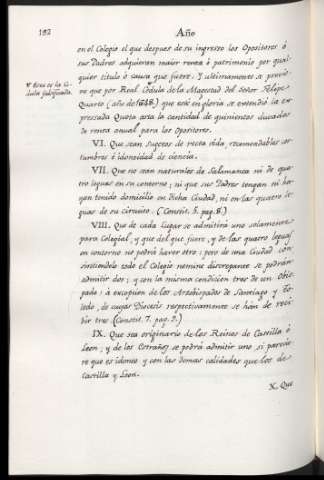 182
Año
en el Colegio el que despues de su ingreso los Opositores ó
sus Padres adquieran maior renta ó patrimonio por qual-
quier titulo ó causa que fuere. Y ultimamente se previe-
ne que por Real Cedula de la Magestad del Señor Felipe
Quarto (año de 1648) que esté en gloria se entendió la ex-
presada Quota asta la cantidad de quinientos ducados
de renta anual para los Opositores.
VI. Que sean Sugetos de recta vida, recomendables cos-
tumbres é idoneidad de ciencia.
VII. Que no sean naturales de Salamanca ni de qua-
tro leguas en su contorno; ni que sus Padres tengan ni ha-
yan tenido domicilio en dicha Ciudad, ni en las quatro le-
guas de su circuito. (Constit. 5. pag. 8.)
VIII. Que de cada lugar se admitirá uno solamente
para Colegial, y que del que fuere, y de las quatro leguas
en contorno no podrá haver otro; pero de una Ciudad con-
sintiendolo todo el Colegio nemine discrepante se podrán
admitir dos; y con la misma condicion tres de un Obis-
pado: á excepcion de los Arzobispados de Santiago y To-
ledo, de cuyas Diocesis respectivamente se hán de reci-
bir tres (Constit. 7. pag. 9.)
IX. Que sea originario de los Reinos de Castilla ó
Leon; y de los Estraños se podrá admitir uno, si parecie-
re que es idoneo y con las demas calidades que los de
Castilla y Leon.
X. Que
Esta es la Ce-
dula falsificada.